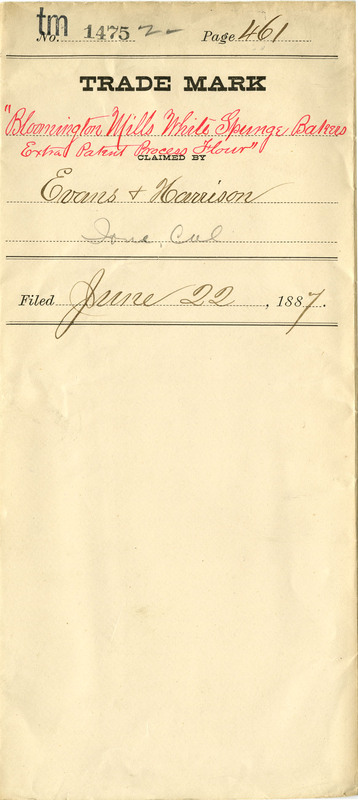 tm
No. 1475 2 Page 461
TRADE MARK
"Bloomington Mills White Spunge Bakers
Extra Patent Process Flour"
CLAIMED BY
Evans & Harrison
Ione, Cal
Filed June 22, 1887.